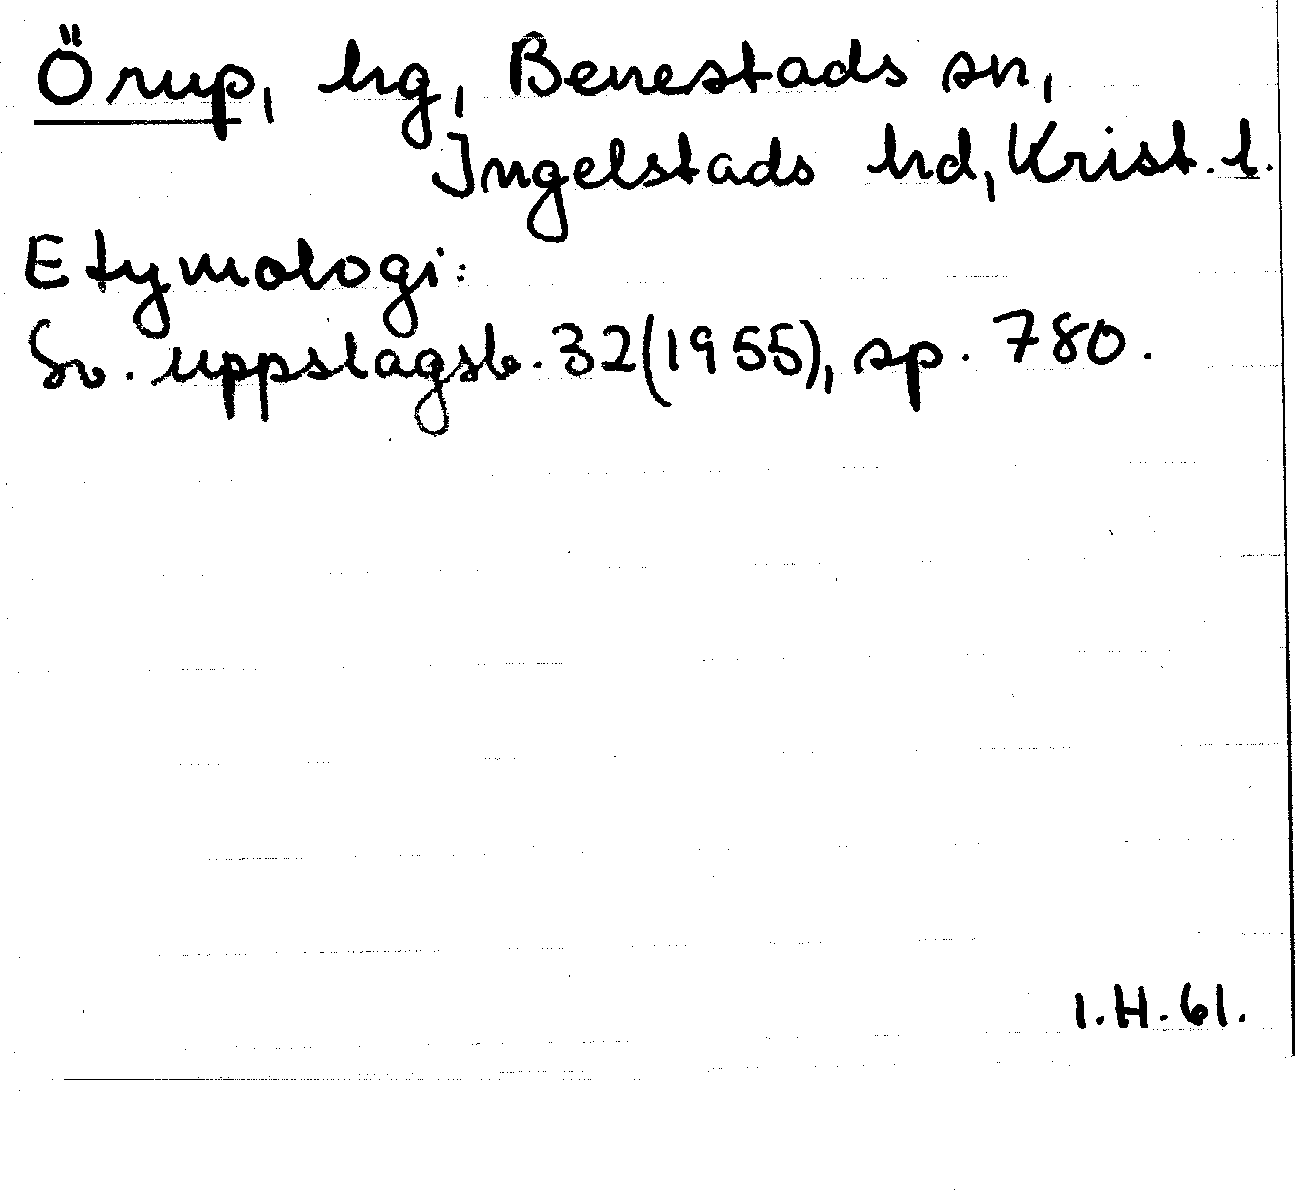 Örup, hg, Benestads sn,
Ingelstads hd, Krist. l.
Etymologi:
Sv. uppslagsb. 32(1955), sp. 780.
I.H.61.